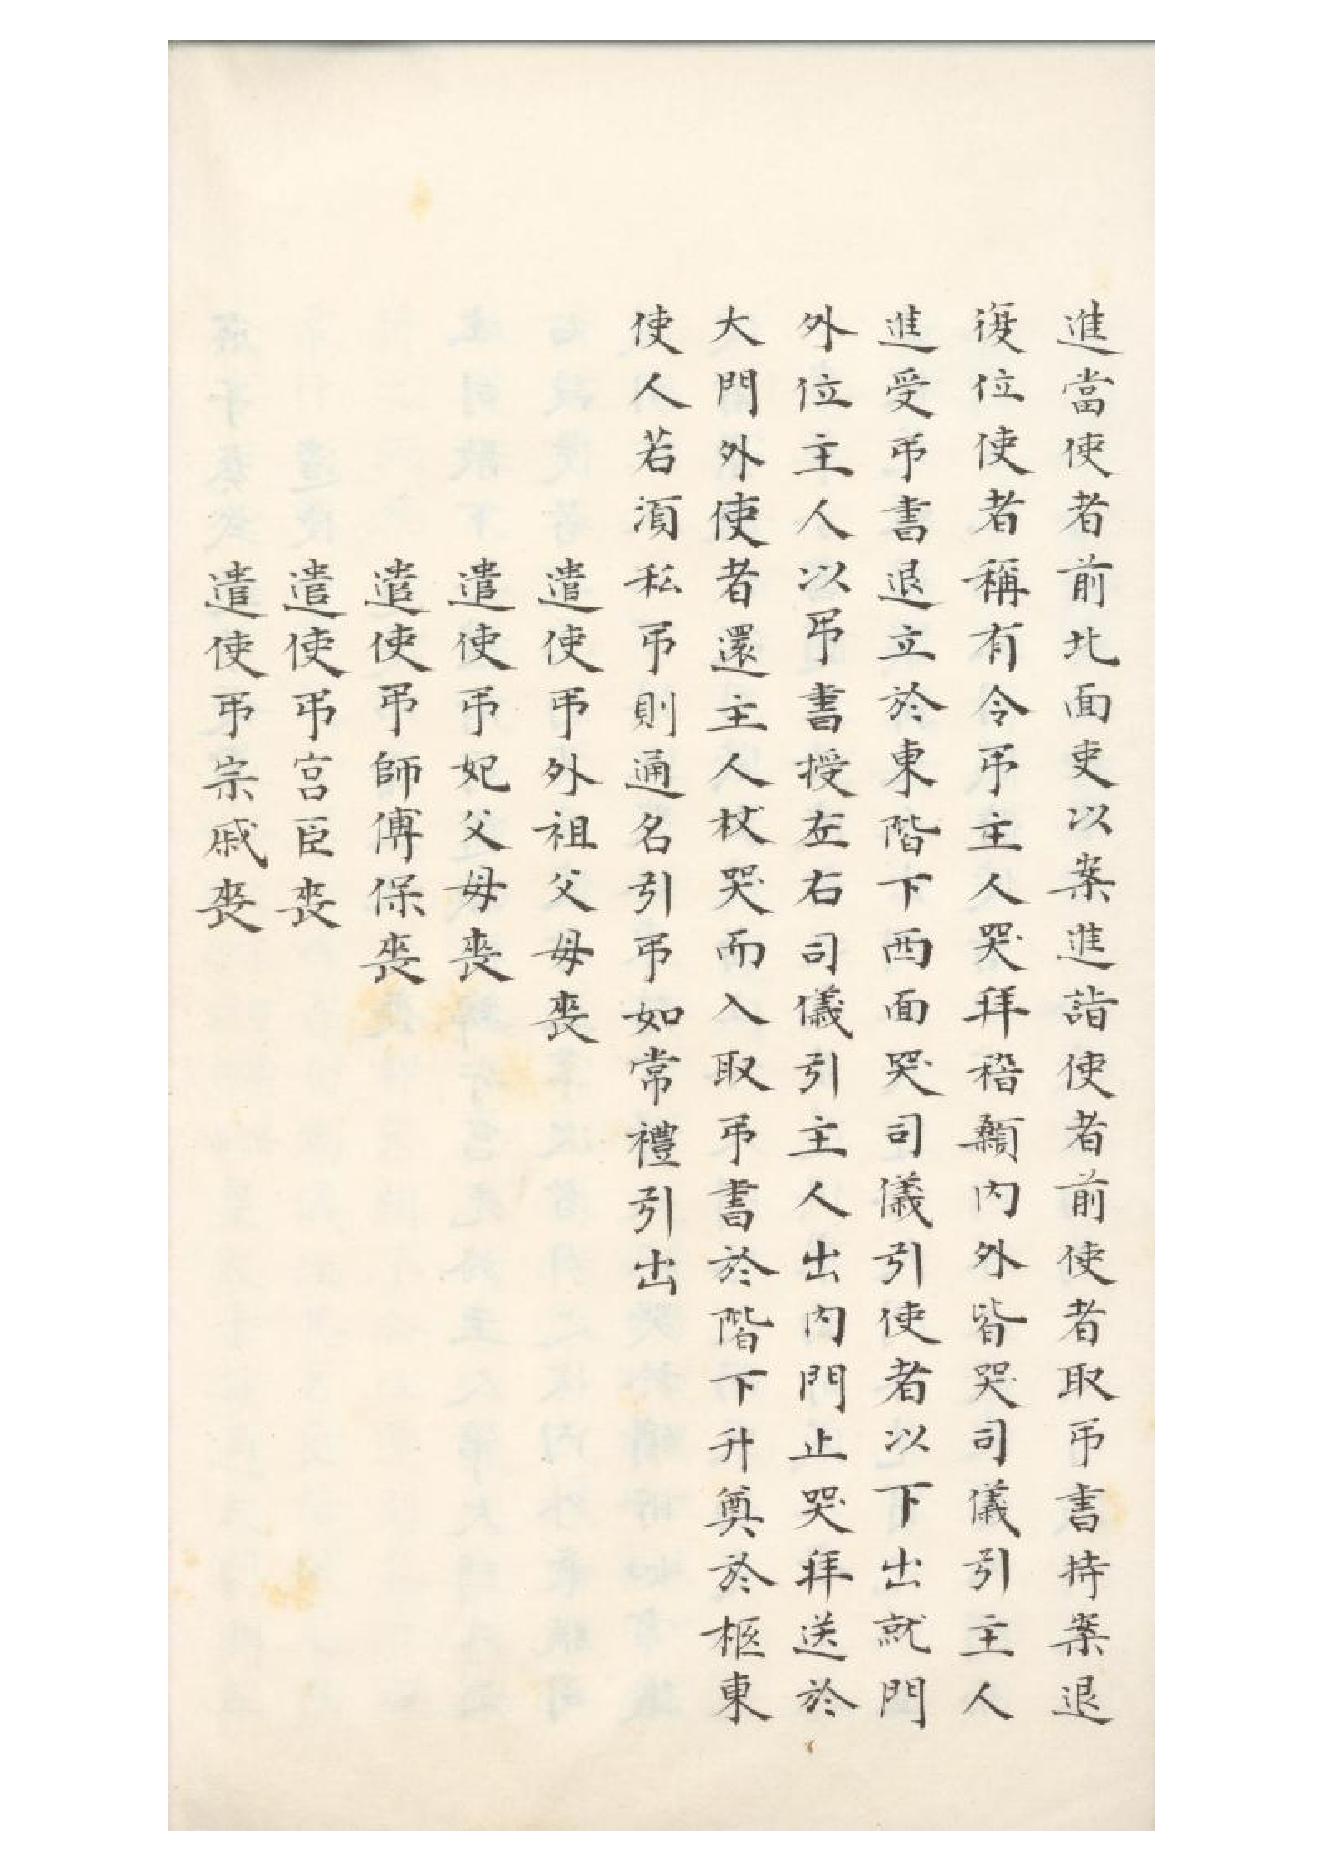 進當使者前北面吏以案進詣使者前使者取弔書持案退
復位使者稱有令弔主人哭拜稽顙内外皆哭司儀引主人
進受弔書退立於東階下西面哭司儀引使者以下出就門
外位主人以弔書授左右司儀引主人出内門止哭拜送於
大門外使者還主人杖哭而入取弔書於階下升奠於柩東
使人若須私弔則通名引弔如常禮引出
遣使弔外祖父母喪
遣使弔妃父母喪
遣使弔師傅保喪
遣使弔宮臣喪
遣使弔宗戚喪